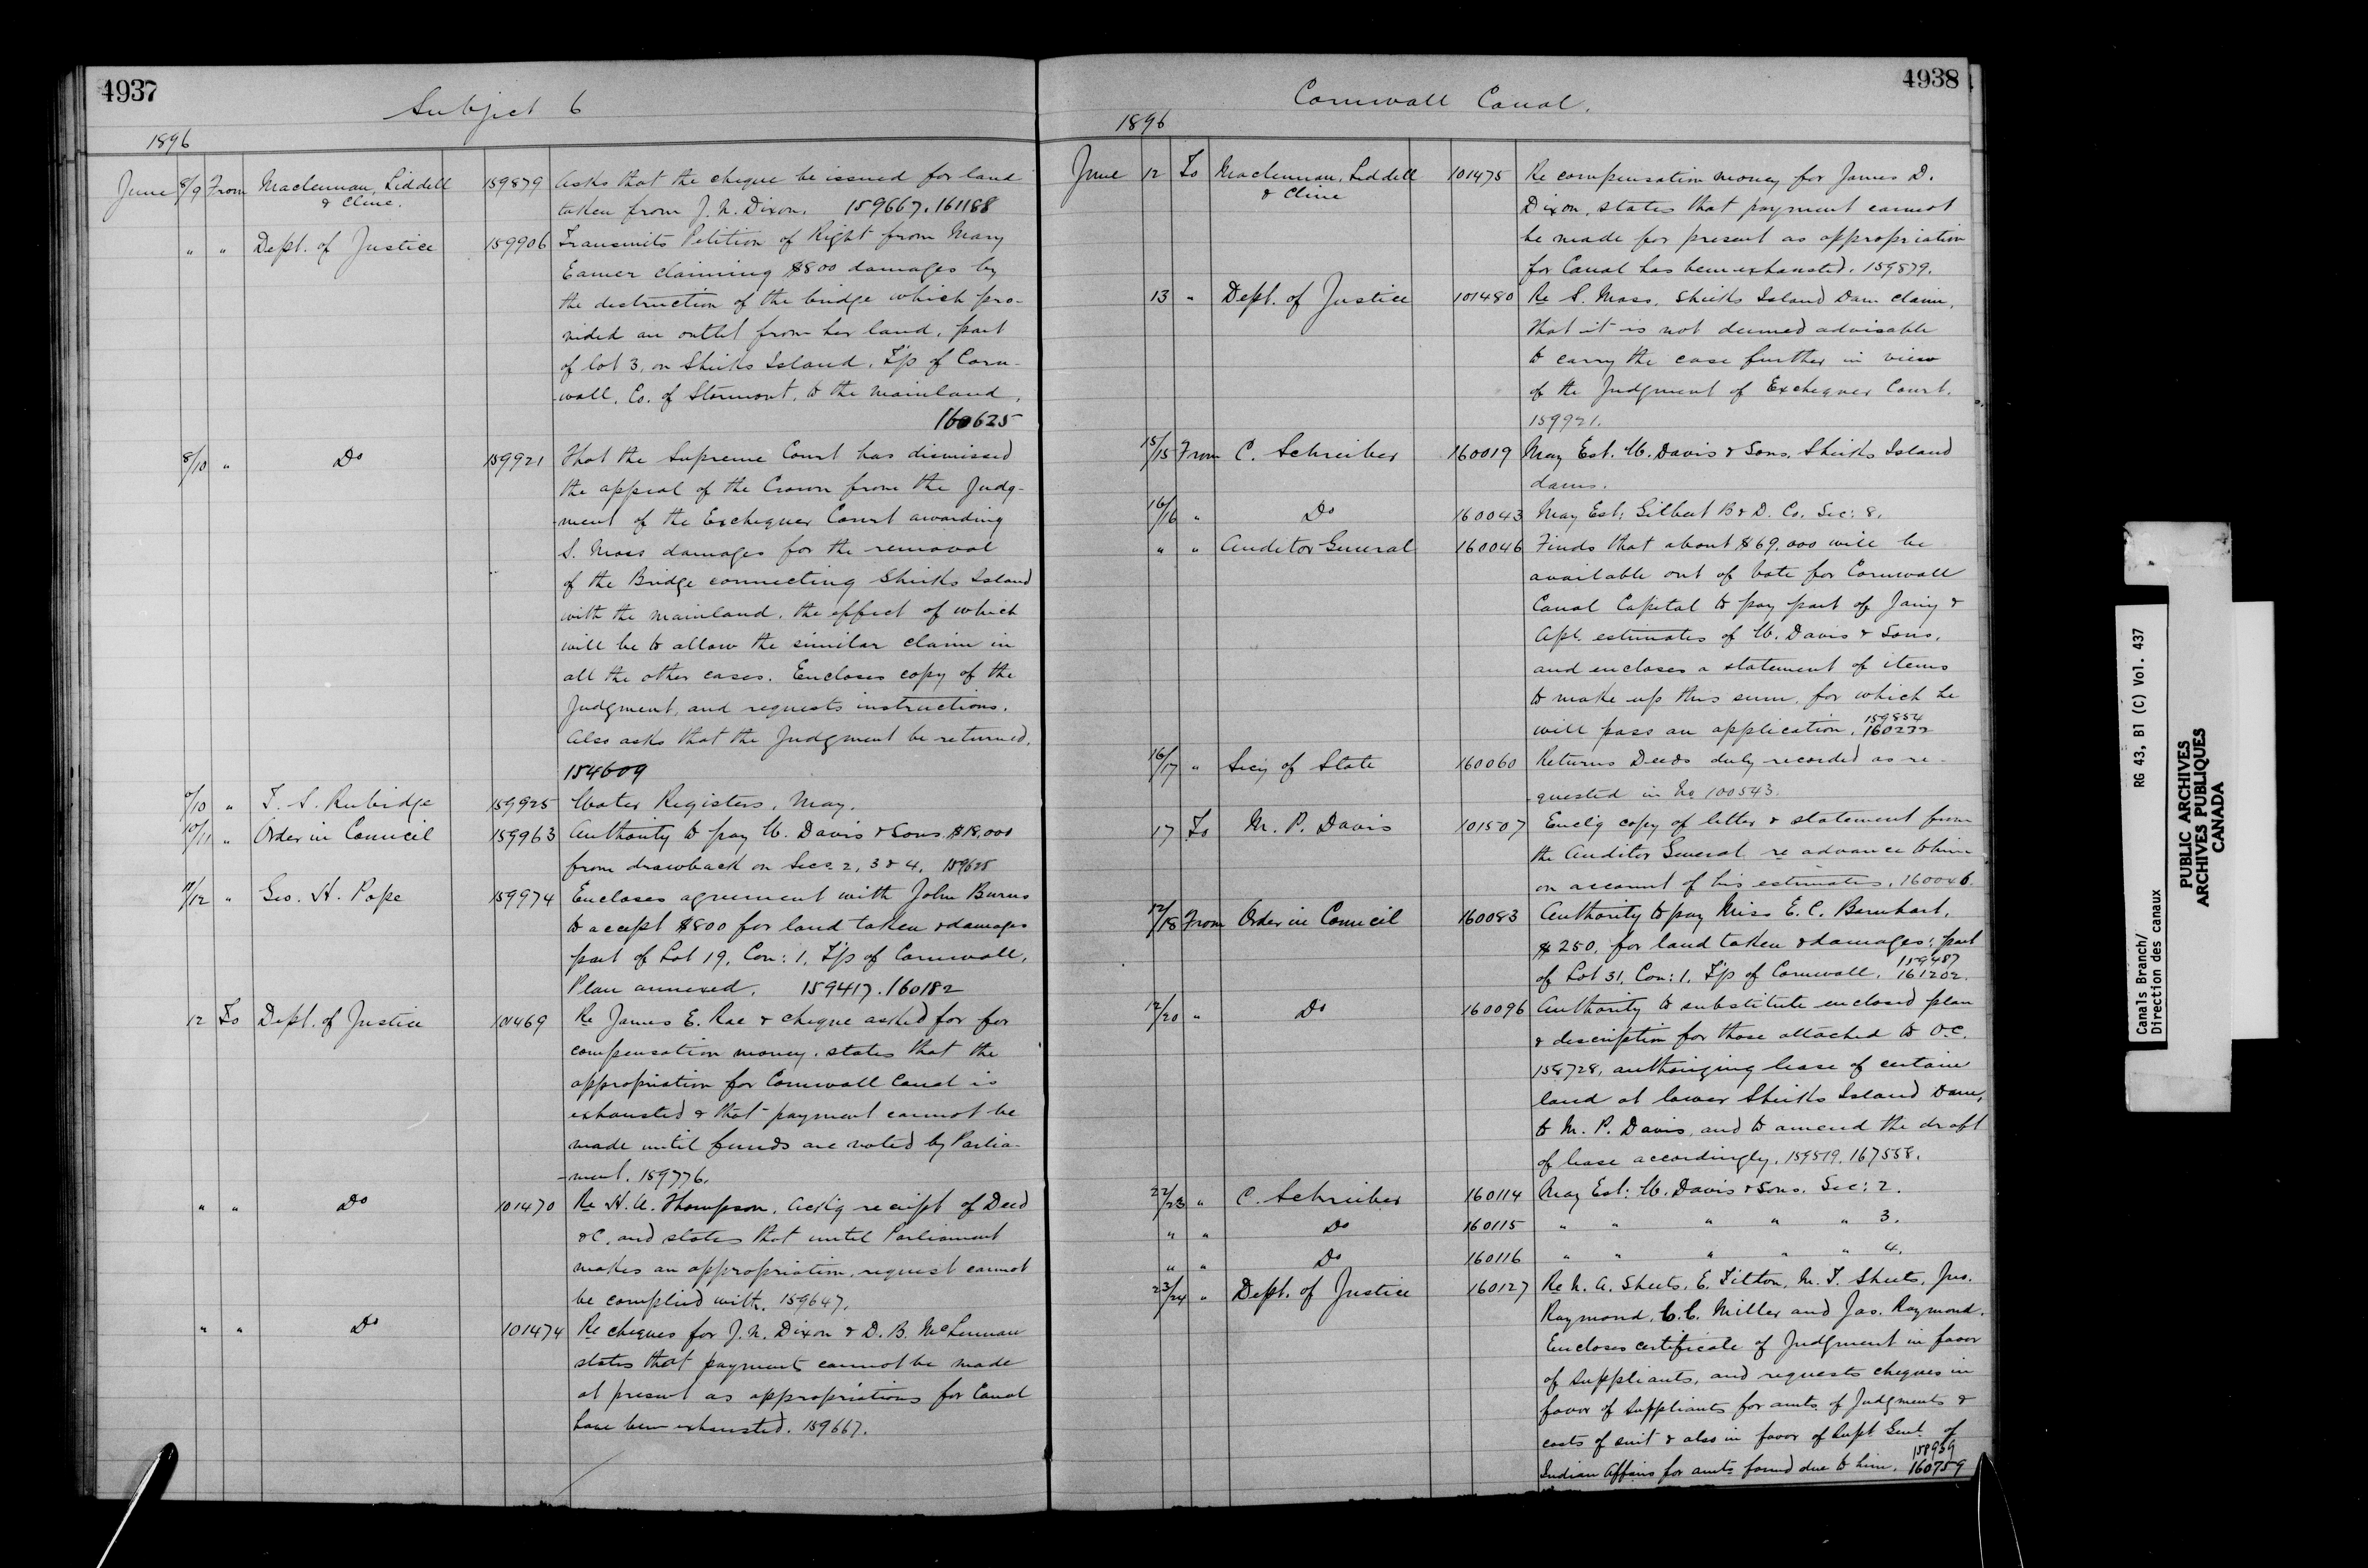 4937
Subject 6
1896
June 8/9 From Maclennan, Liddell & Cline. 159879 Asks that the cheque be issued for land
taken from J. N. Dixon. 159667. 161188
" " Dept. of Justice 159906 Transmits Petition of Right from Mary
Eamer claiming $800 damages by
the destruction of the bridge which pro-
vided an outlet from her land, part
of lot 3, on Sheiks Island, T'p of Corn-
wall, Co. of Stormont, to the mainland,
160625
8/10 " Do 159921 That the Supreme Court has dismissed
the appeal of the Crown from the Judg-
ment of the Exchequer Court awarding
S. Moss damages for the removal
of the Bridge connecting Sheiks Island
with the mainland, the effect of which
will be to allow the similar claim in
all the other cases. Encloses copy of the
Judgment, and requests instructions.
Also asks that the Judgment be returned.
154609
/10 " T. S. Rubidge 159925 Water Registers, May.
10/11 " Order in Council 159963 Authority to pay W. Davis & Sons $18,000
from drawback on Secs. 2, 3 & 4. 159625
/12 " Geo. H. Pope 159974 Encloses agreement with John Burns
to accept $800 for land taken & damages
part of Lot 19, Con: 1, T'p of Cornwall,
Plan annexed. 159417. 160182
12 To Dept. of Justice 101469 Re James E. Rae & cheque asked for for
compensation money, states that the
appropriation for Cornwall Canal is
exhausted & that payment cannot be
made until funds are voted by Parlia-
-ment. 159776.
" " Do 101470 Re H. A. Thompson, Ack'g receipt of Deed
&c, and states that until Parliament
makes an appropriation, request cannot
be complied with. 159647.
" " Do 101474 Re cheques for J. N. Dixon & D. B. McLennan
states that payments cannot be made
at present as appropriations for Canal
have been exhausted. 159667.
4938
Cornwall Canal.
1896
June 12 To Maclennan, Liddell & Cline 101475 Re compensation money for James D.
Dixon, states that payment cannot
be made for present as appropriation
for Canal has been exhausted. 159879.
13 " Dept. of Justice 101480 Re S. Moss, Sheiks Island Dam claim,
that it is not deemed advisable
to carry the case further in view
of the Judgment of Exchequer Court.
159921.
15/15 From C. Schreiber 160019 May Est. W. Davis & Sons, Sheiks Island
dams.
16/16 " Do 160043 May Est: Gilbert B & D. Co. Sec: 8.
" " Auditor General 160046 Finds that about $69,000 will be
available out of Vote for Cornwall
Canal Capital to pay part of Jan'y &
Apl. estimates of W. Davis & Sons,
and encloses a statement of items
to make up this sum, for which he
will pass an application. 159854 160232
16/17 " Sec'y of State 160060 Returns Deeds duly recorded as re-
quested in No 100543.
17 To M. P. Davis 101507 Encl'g copy of letter & statement from
the Auditor General re advance to him
on account of his estimates. 160046.
12/18 From Order in Council 160083 Authority to pay Miss E. C. Barnhart,
$250, for land taken & damages: part
of Lot 31, Con: 1, T'p of Cornwall. 159487 161202.
12/20 " Do 160096 Authority to substitute enclosed plan
& description for those attached to O.C.
158728, authorizing lease of certain
land at lower Sheiks Island Dam,
to M. P. Davis, and to amend the draft
of lease accordingly. 159519. 167558.
22/23 " C. Schreiber 160114 May Est: W. Davis & Sons. Sec: 2.
" " Do 160115 " " " " " 3.
" " Do 160116 " " " " " 4.
23/24 " Dept. of Justice 160127 Re N. A. Sheets, E. Tilton, M. T. Sheets, Jno.
Raymond, C. C. Miller and Jas. Raymond.
Encloses certificate of Judgment in favor
of Suppliants, and requests cheques in
favor of Suppliants for amts. of Judgments &
costs of suit & also in favor of Supt Genl. of
Indian Affairs for amts found due to him. 158959 160759
Canals Branch/ RG 43, B1 (C) Vol. 437
Direction des canaux
PUBLIC ARCHIVES
ARCHIVES PUBLIQUES
CANADA